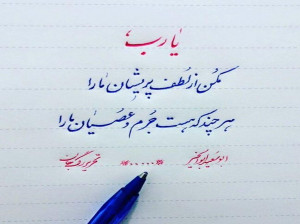 یا رب؛
مکن از لطف پریشان ما را
هر چند که هست جرم و عصیان ما را
ابوسعید ابوالخیر